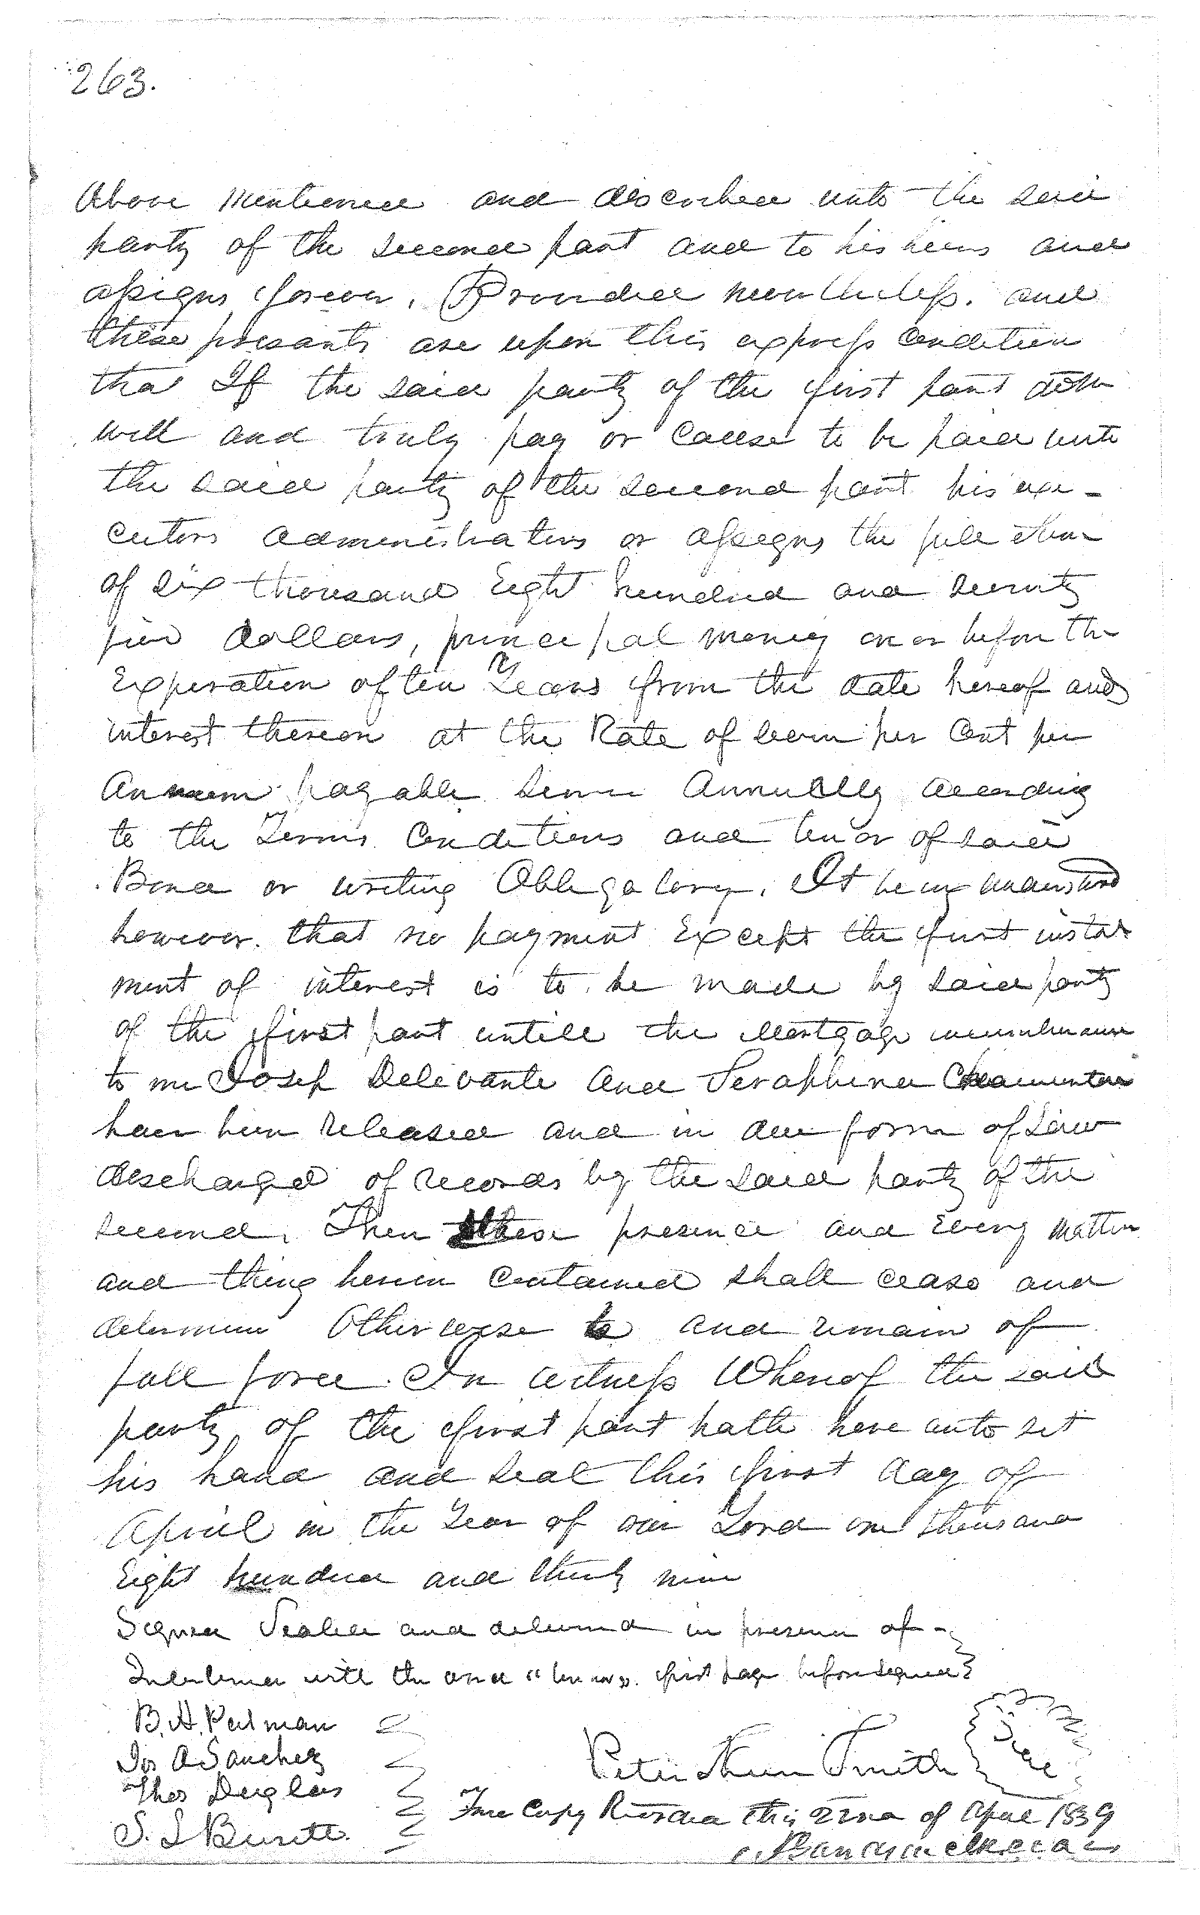 263.
Above mentioned and described unto the said
party of the second part and to his heirs and
assigns forever. Provided nevertheless. and
these presants are upon this express condition
tha If the said party of the first part doth
well and truly pay or cause to be paid unto
the said party of the second part his exe-
cutors administrators or assigns the full sum
of six thousand Eight hundred and seventy
five dollars, principal money on or before the
Expiration of ten Years from the date hereof and
interest thereon at the Rate of seven per Cent per
Annum payable semi Annually according
to the Terms Conditions and tenor of said
Bond or writing Obligatory. It being understood
however. that no payment Except the first instal
ment of interest is to be made by said party
of the first part untill the Mortgage incumbrance
to Josef Delevante and Seraphina
have been released and in due form of Law
descharged of records by the said party of the
second. Then these presence and Every matter
and thing herein contained shall cease and
determine Otherwise to and remain of
full force. In witness Whereof the said
party of the first part hath here unto set
his hand and seal this first day of
April in the Year of our Lord one thousand
Eight hundred and thirty nine
Signed Sealed and delivered in presence of -
Interlined with the word " " first page before signed
B. A. Putman
Jos A Sanchez
Thos Douglas
S. L Burritt.
Peter Smith Seal
True Copy Recorded this 22nd of April 1839